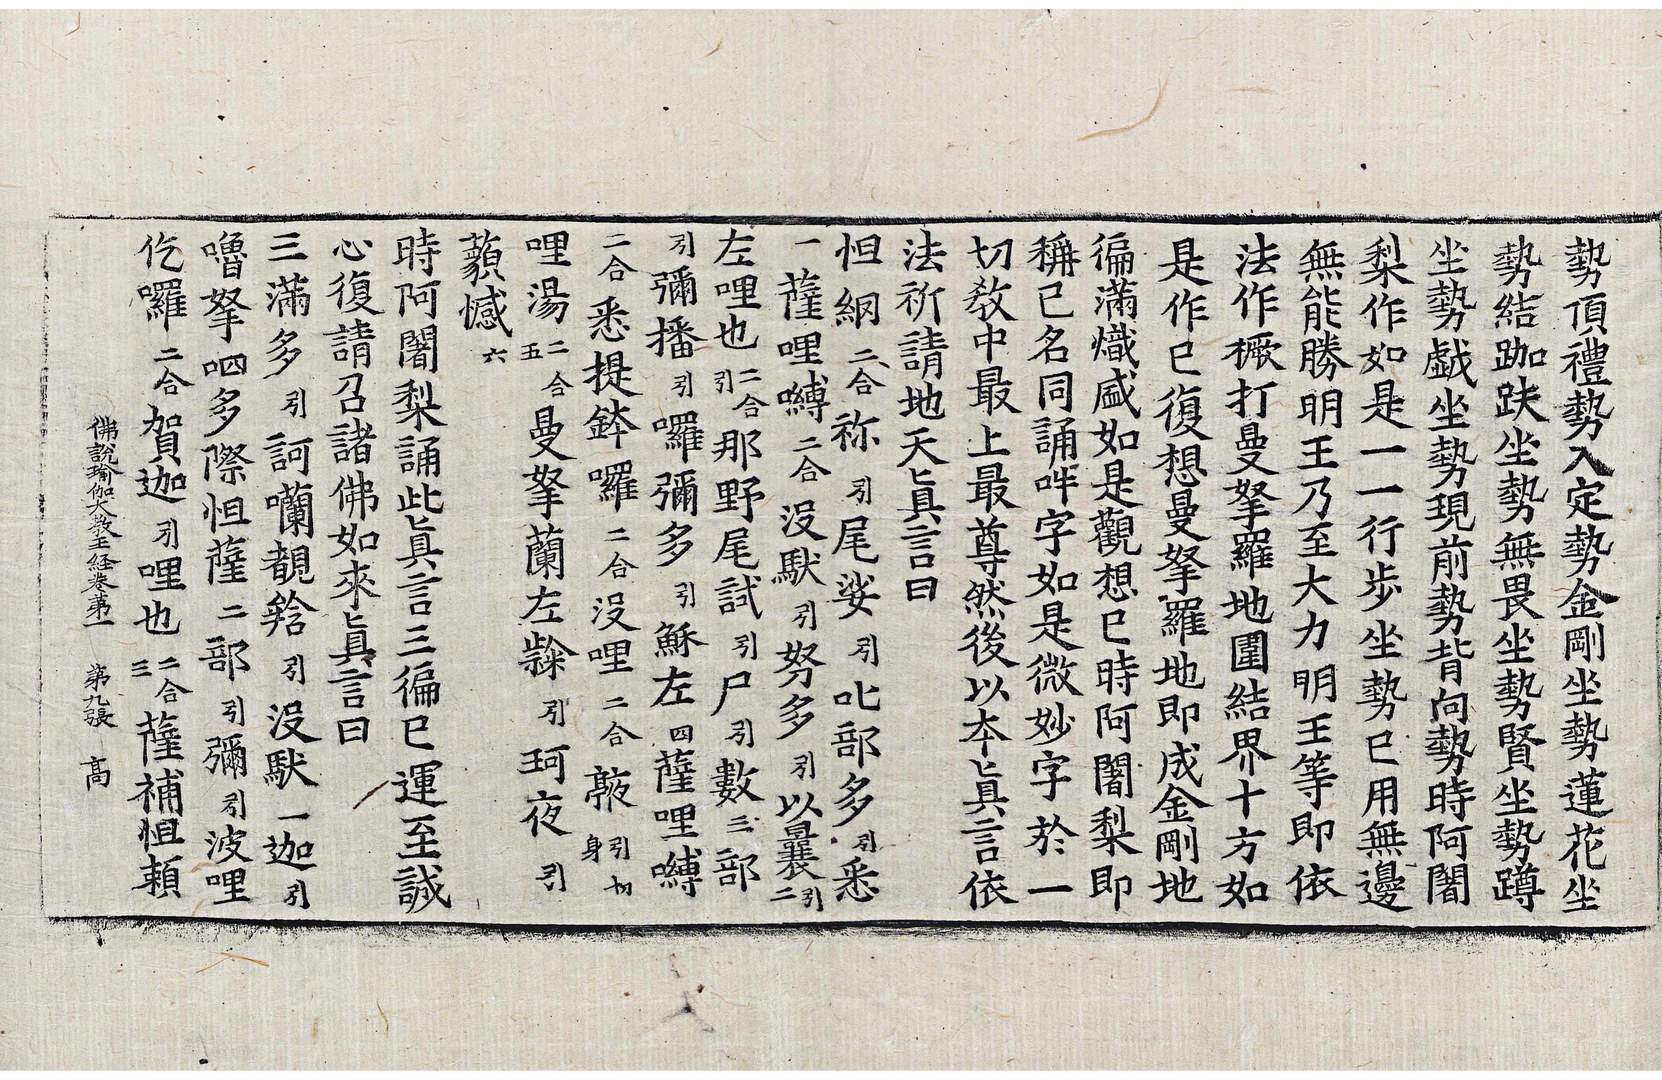 勢頂禮勢入定勢金剛坐勢蓮花坐
勢結跏趺坐勢無畏坐勢賢坐勢蹲
坐勢戯坐勢現前勢背向勢時阿闍
梨作如是一一行步坐勢已用無邊
無能勝明王乃至大力明王等即依
法作橛打曼拏羅地圍結界十方如
是作已復想曼拏羅地即成金剛地
徧滿熾盛如是觀想已時阿闍梨即
稱已名同誦吽字如是微妙字於一
切教中最上最尊然後以本真言依
法祈請地天真言曰
怛網二合祢引尾娑引叱部多引悉
一薩哩嚩二合没馱引努多引以曩二引
左哩也二合引那野尾試引尸引數三部
引彌播引囉彌多引穌左四薩哩嚩
二合悉提鉢囉二合没哩二合引切身
哩湯二合五曼拏蘭左引珂夜引
憾六
時阿闍梨誦此真言三徧已運至誠
心復請召諸佛如來真言曰
三滿多引訶囒引没馱一迦引
嚕拏呬多際怛薩二部引彌引波哩
仡囉二合賀迦引哩也二合三薩補怛賴
佛説瑜伽大教王経卷第一 第九張 高